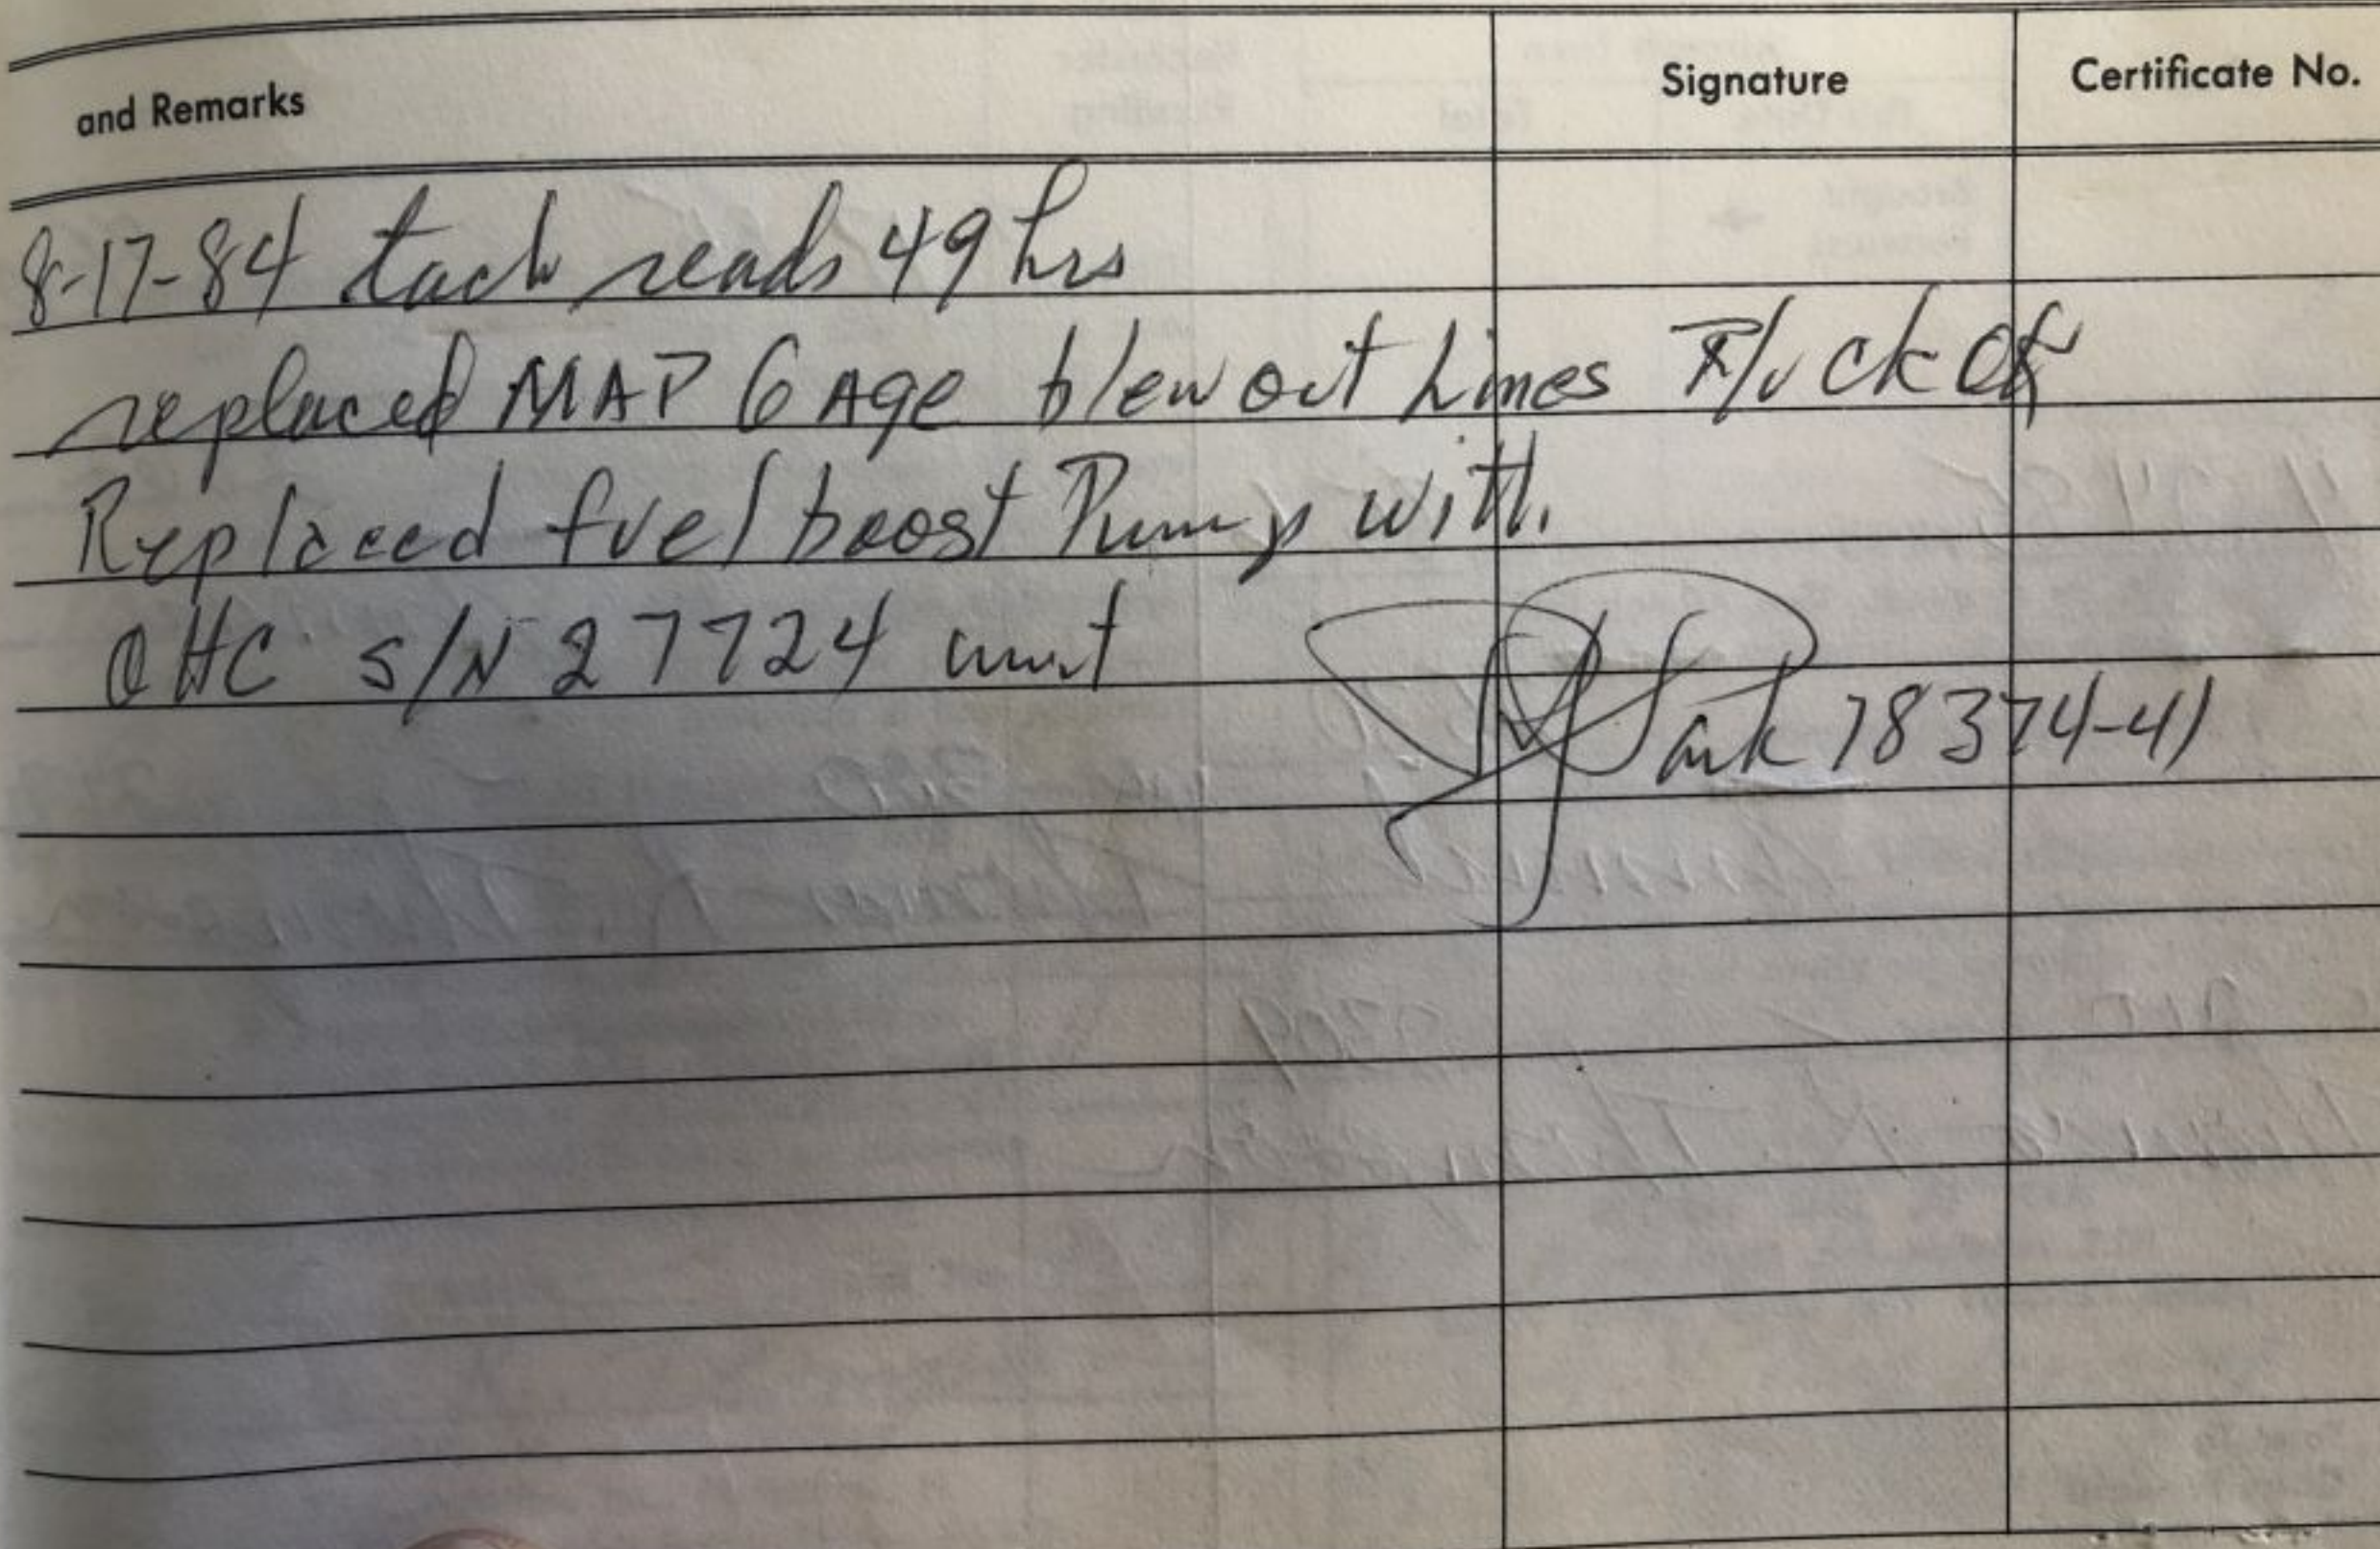 and Remarks
Signature
Certificate No.
8-17-84 tach reads 49 hrs
replaced MAP GAge blew out Lines
Replaced fuel boost Pump with
OHC S/N 27724 unit
18374-41